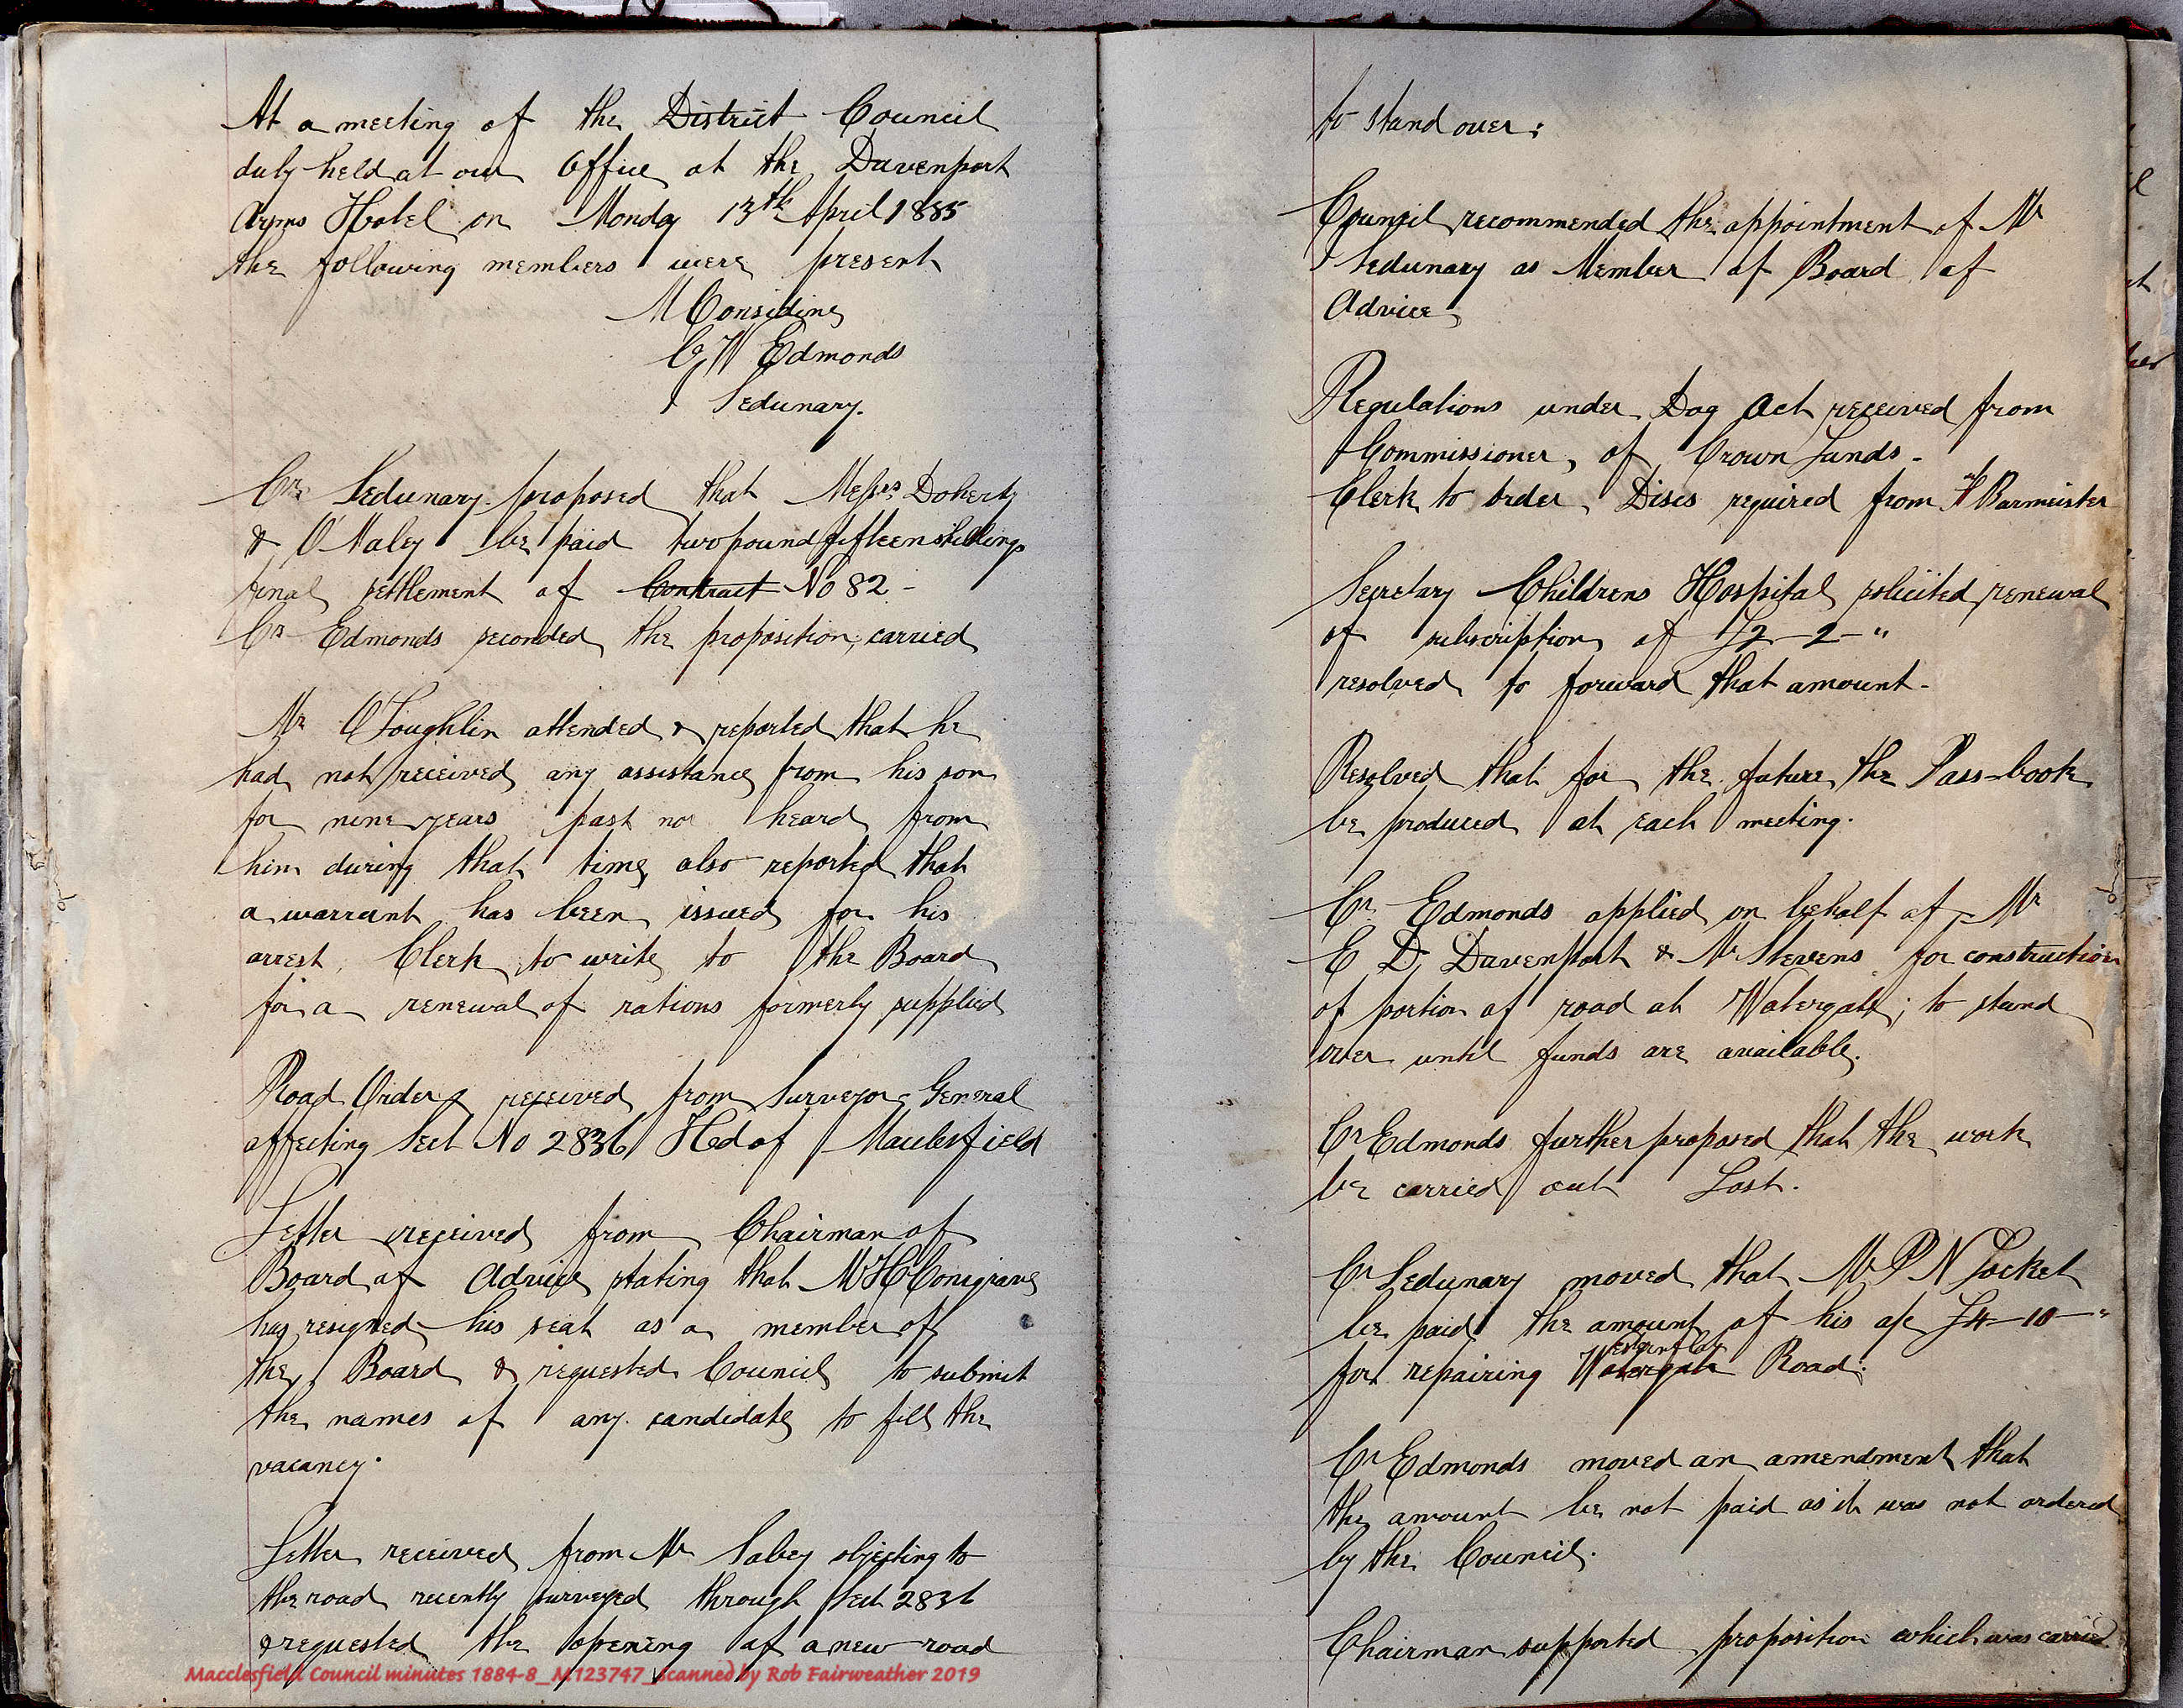 At a meeting of the District Council
duly held at our Office at the Davenport
Arms Hotel on Monday 13th April 1885
the following members were present
M Considine
C W Edmonds
J Sedunary.
Cr Sedunary proposed that Messrs Doherty
& O'Maley be paid two pound fifteen shillings
final settlement of Contract No 82 -
Cr Edmonds seconded the proposition, carried
Mr O'Loughlin attended & reported that he
had not received any assistance from his son
for nine years past nor heard from
him during that time, also reported that
a warrant has been issued for his
arrest. Clerk to write to the Board
for a renewal of rations formerly supplied
Road Orders received from Surveyor General
affecting Sect No 2836 Hd of Macclesfield
Letter received from Chairman of
Board of Advice stating that Mr H C Conigrave
has resigned his seat as a member of
the Board & requested Council to submit
the names of any candidate to fill the
vacancy.
Letter received from Mr objecting to
the road recently surveyed through Sect 2836
& requested the opening of a new road
Macclesfield Council minutes 1884-8_M123747_scanned by Rob Fairweather 2019
to stand over;
Council recommended the appointment of Mr
J Sedunary as Member of Board of
Advice
Regulations under Dog Act received from
Commissioner of Crown Lands -
Clerk to order Discs required from Barmeister
Secretary Childrens Hospital solicited renewal
of subscription of £2-2-"
resolved to forward that amount -
Resolved that for the future the Pass-book
be produced at each meeting.
Cr Edmonds applied on behalf of Mr
E D Davenport & Mr Stevens for construction
of portion of road at Watergate; to stand
over until funds are available.
Cr Edmonds further proposed that the work
be carried out Lost.
Cr Sedunary moved that Mr P N Locket
be paid the amount of his a/c £4-10-"
esternflat
for repairing Watergate Road.
Cr Edmonds moved an amendment that
the amount be not paid as it was not ordered
by the Council.
Chairman supported proposition which was carried